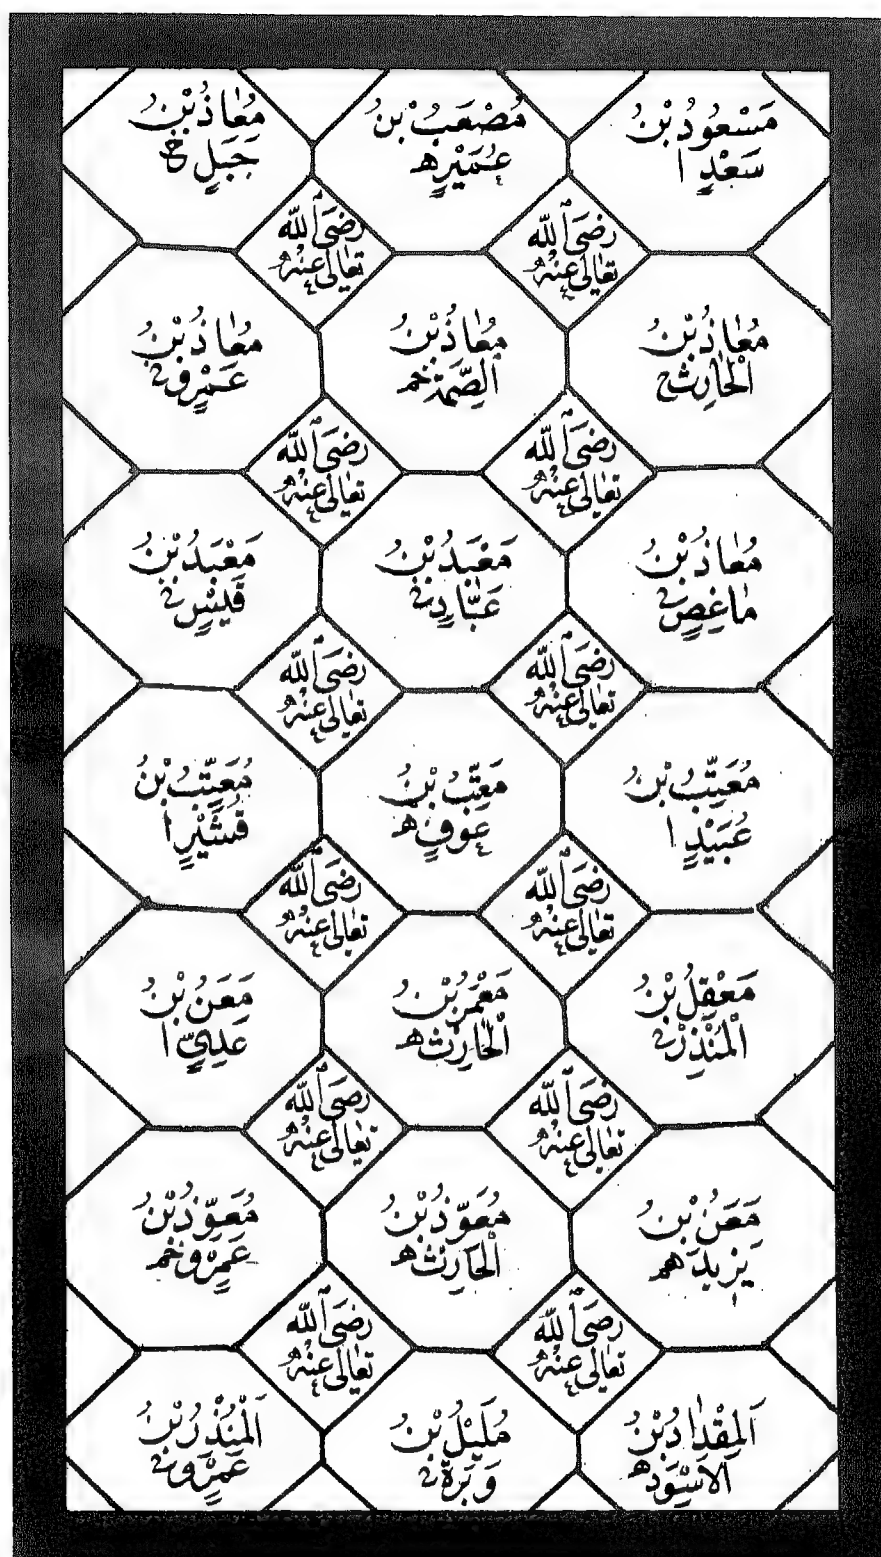 مَسْعُودُ بْنُ
سَعْدٍ ا
مُصْعَبُ بْنُ
عُمَيْرٍ ھ
مُعَاذُ بْنُ
جَبَلٍ خ
رَضِىَ اللّٰه
تَعَالٰى عَنْهُ
رَضِىَ اللّٰه
تَعَالٰى عَنْهُ
مُعَاذُ بْنُ
الْحَارِثِ خ
مُعَاذُ بْنُ
الصِّمَّةِ خ
مُعَاذُ بْنُ
عَمْرٍو
رَضِىَ اللّٰه
تَعَالٰى عَنْهُ
رَضِىَ اللّٰه
تَعَالٰى عَنْهُ
مُعَاذُ بْنُ
مَاعِصٍ
مَعْبَدُ بْنُ
عَبَّادٍ
مَعْبَدُ بْنُ
قَيْسٍ
رَضِىَ اللّٰه
تَعَالٰى عَنْهُ
رَضِىَ اللّٰه
تَعَالٰى عَنْهُ
مُعَتِّبُ بْنُ
عُبَيْدٍ ا
مُعَتِّبُ بْنُ
عَوْفٍ ھ
مُعَتِّبُ بْنُ
قُشَيْرٍ ا
رَضِىَ اللّٰه
تَعَالٰى عَنْهُ
رَضِىَ اللّٰه
تَعَالٰى عَنْهُ
مَعْقِلُ بْنُ
الْمُنْذِرِ
مَعْمَرُ بْنُ
الْحَارِثِ ھ
مَعَنُ بْنُ
عَدِيٍّ ا
رَضِىَ اللّٰه
تَعَالٰى عَنْهُ
رَضِىَ اللّٰه
تَعَالٰى عَنْهُ
مَعَنُ بْنُ
يَزِيدَ
مُعَوِّذُ بْنُ
الْحَارِثِ
مُعَوِّذُ بْنُ
عَمْرٍو
رَضِىَ اللّٰه
تَعَالٰى عَنْهُ
رَضِىَ اللّٰه
تَعَالٰى عَنْهُ
اَلْمِقْدَادُ بْنُ
الْاَسْوَدِ ھ
مُلَيْلُ بْنُ
وَبَرَةَ
اَلْمُنْذِرُ بْنُ
عَمْرٍو